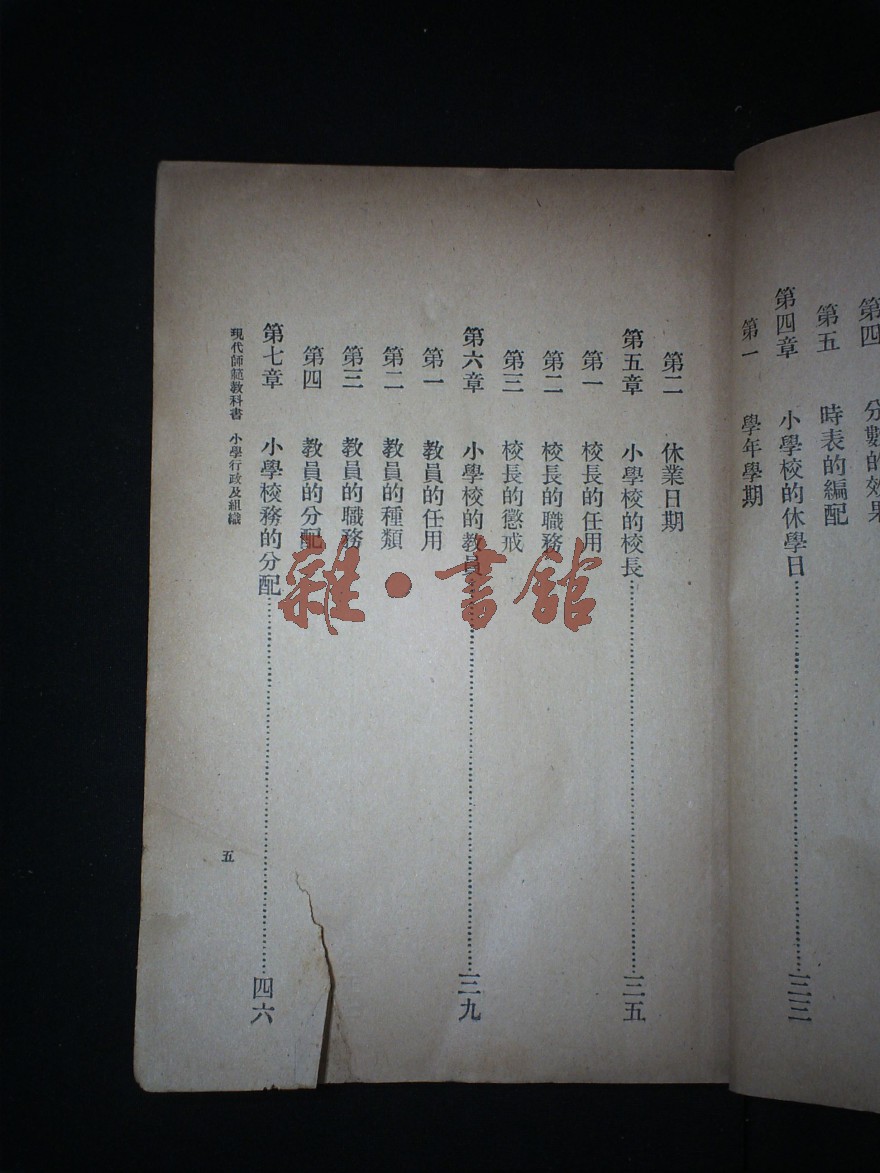 第四 分數的效果
第五 時表的編配
第四章 小學校的休學日……三三
第一 學年學期
第二 休業日期
第五章 小學校的校長……三五
第一 校長的任用
第二 校長的職務
第三 校長的懲戒
第六章 小學校的教員……三九
第一 教員的任用
第二 教員的種類
第三 教員的職務
第四 教員的分配
第七章 小學校務的分配……四六
現代師範教科書 小學行政及組織
五
雜·書舘